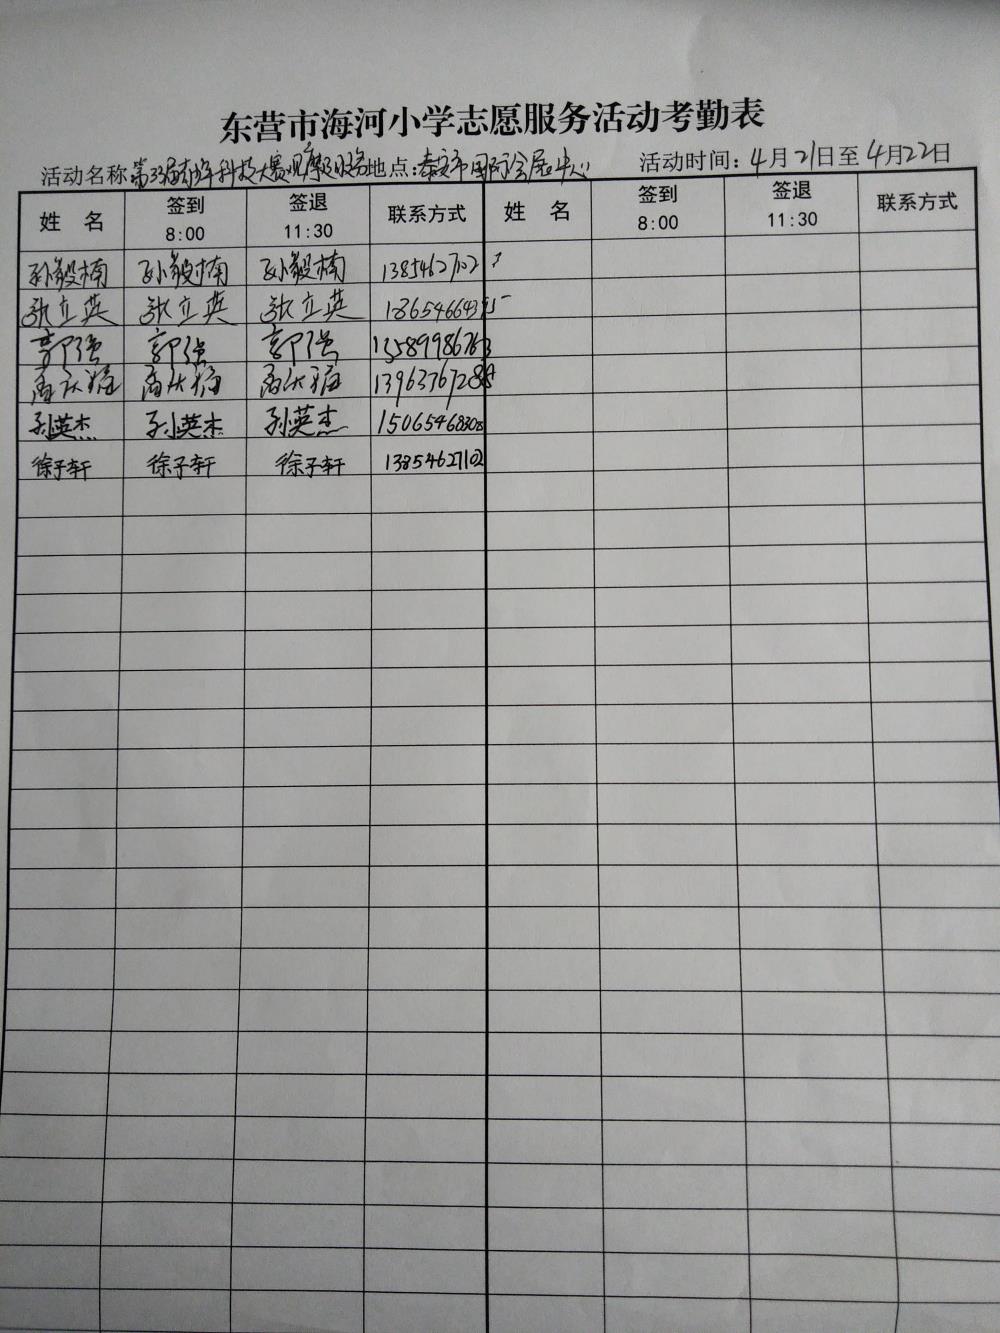 东营市海河小学志愿服务活动考勤表
活动名称:第33届青少年科技大赛观摩及服务地点:泰安市国际会展中心 活动时间:4月21日至4月22日
姓 名 签到 8:00 签退 11:30 联系方式 姓 名 签到 8:00 签退 11:30 联系方式
孙毅楠 孙毅楠 孙毅楠 1385462702
张立英 张立英 张立英 18654664395
郭强 郭强 郭强 13589986763
13963767288
孙英杰 孙英杰 孙英杰 15065468308
徐子轩 徐子轩 徐子轩 13854627102